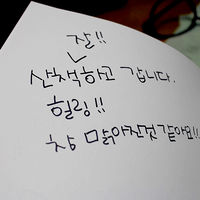 잘!!
산책하고 갑니다.
힐링!!
참 맑아진것 같아요!!